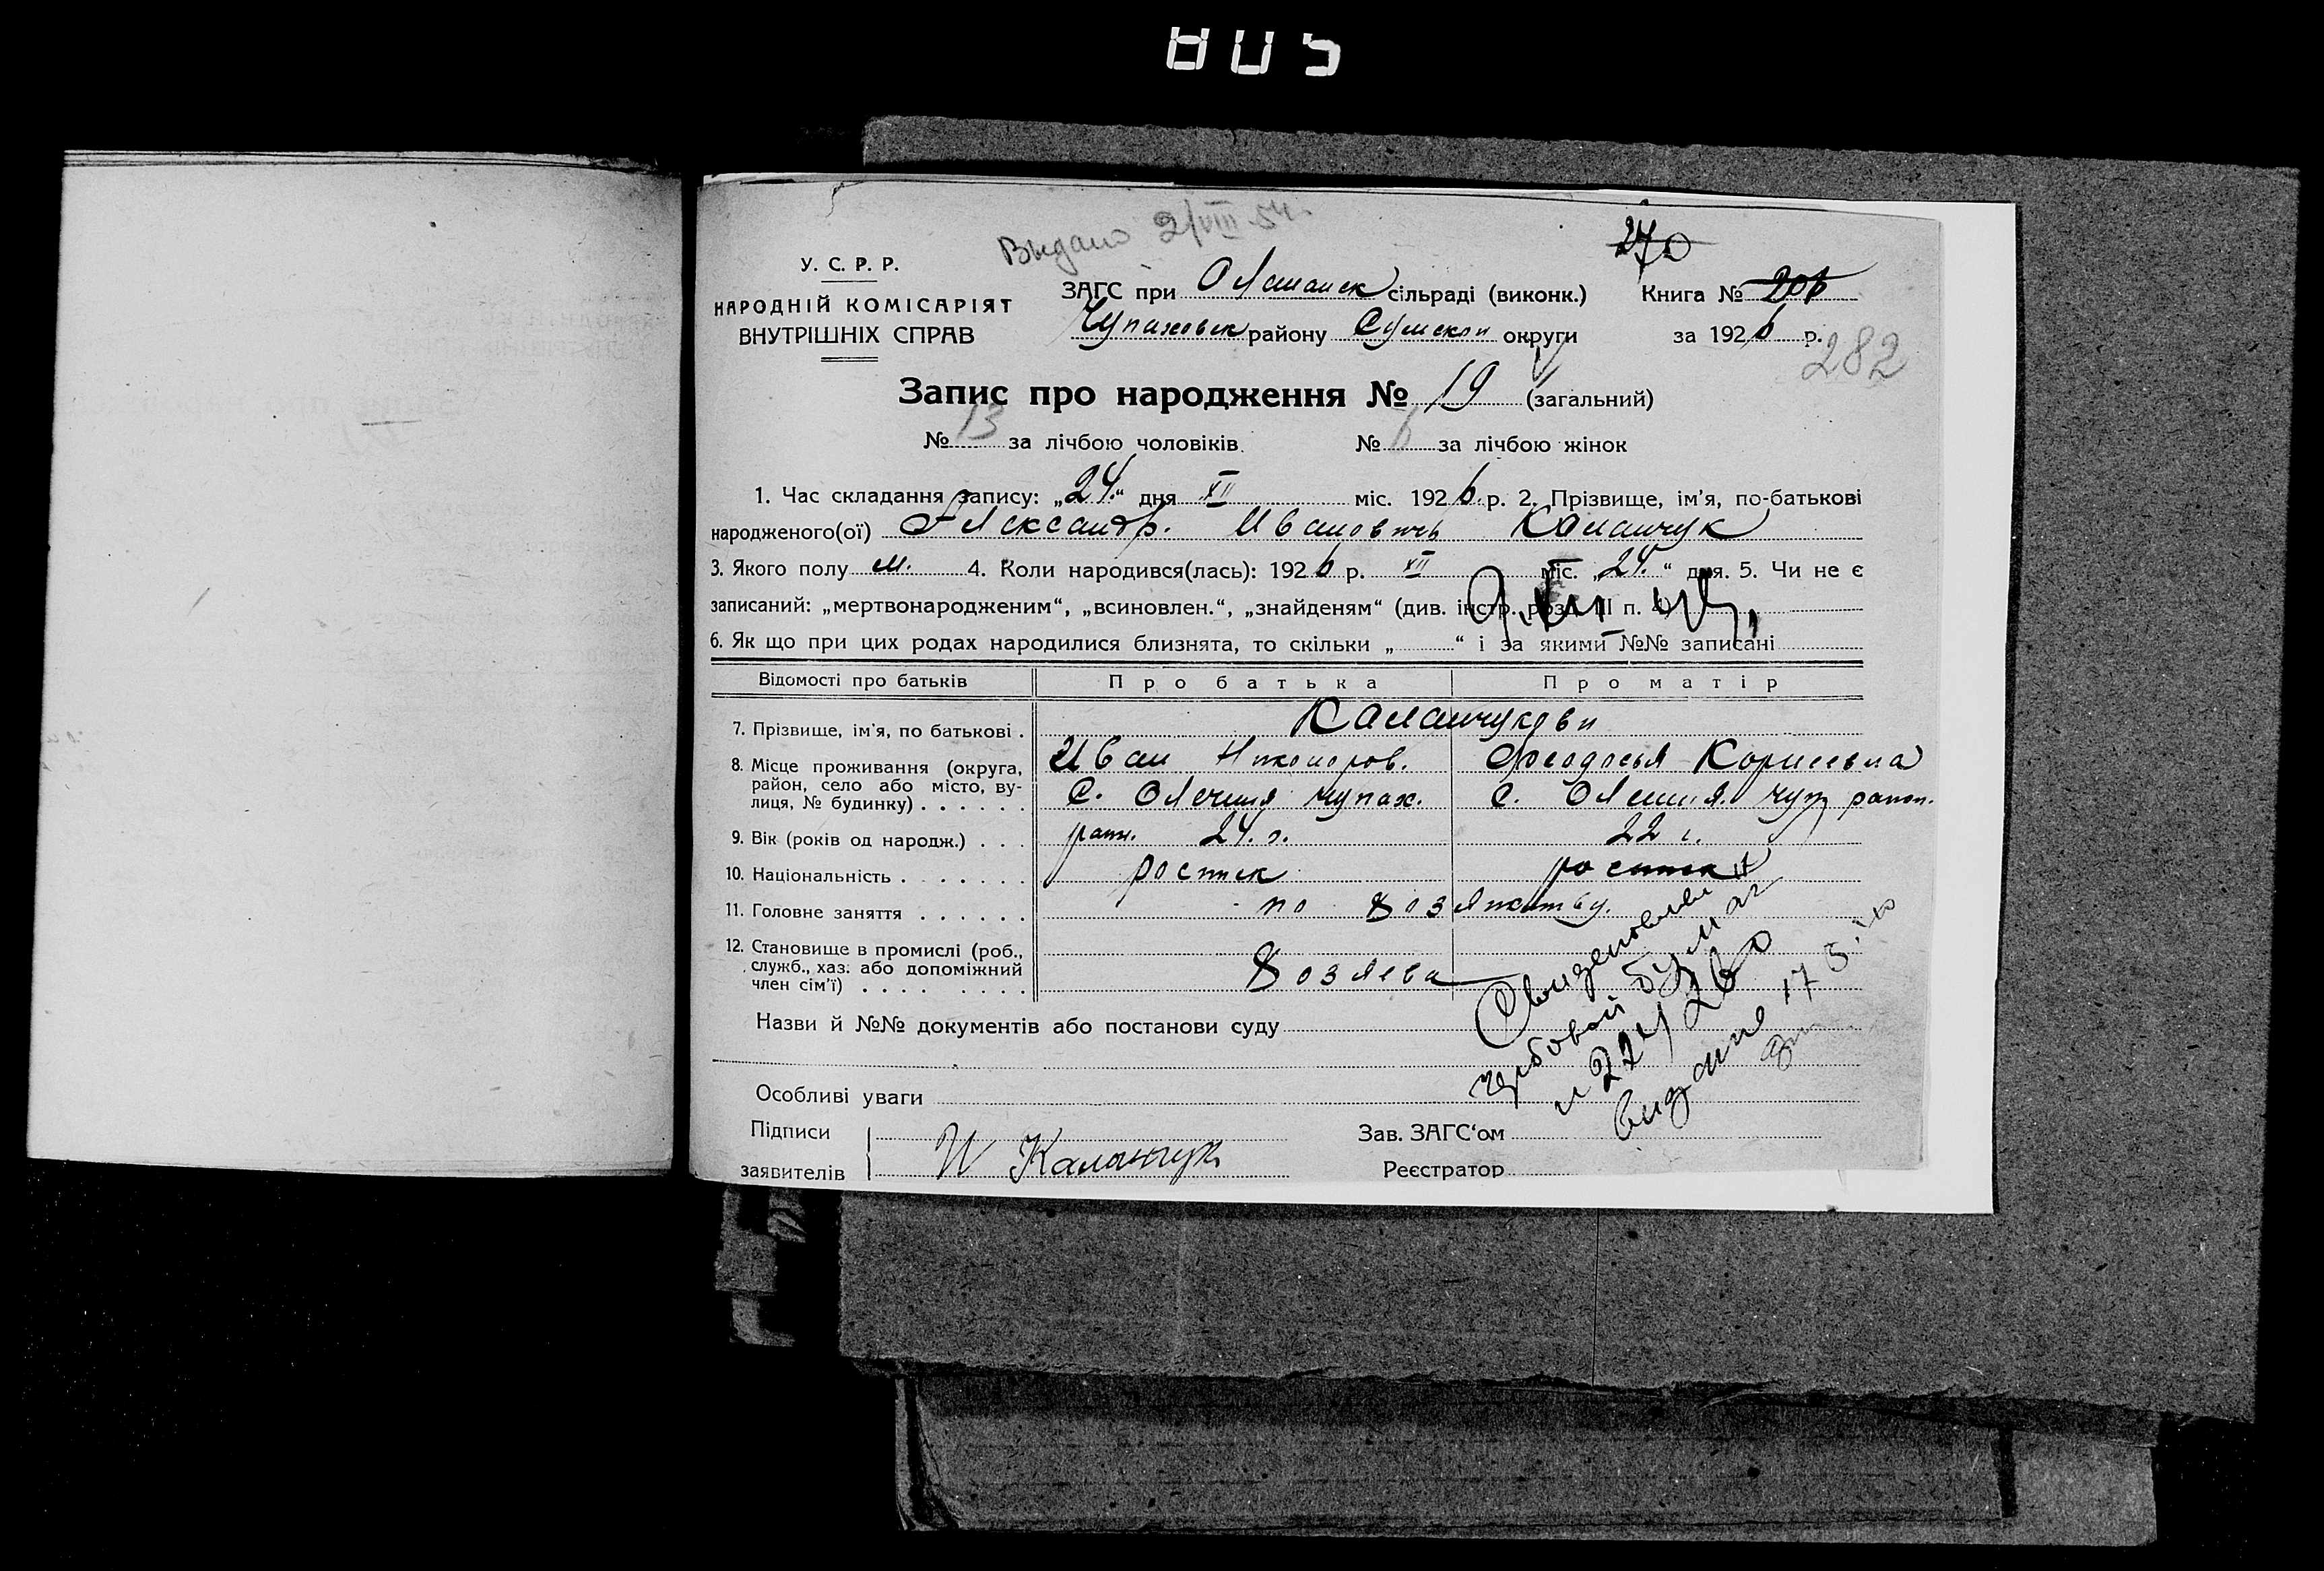 Выдано 2/VIII-54г.
270
У. С. Р. Р.
НАРОДНІЙ КОМІСАРІЯТ
ВНУТРІШНІХ СПРАВ
ЗАГС при Олешанск сільраді (виконк.) Книга №
Чупаховск району Сумскои округи за 1926 р.
282
Запис про народження № 19 (загальний)
№ 13 за лічбою чоловіків. № 6 за лічбою жінок
1. Час складання запису: „24“ дня XII міс. 1926 р. 2. Прізвище, ім'я, по-батькові
народженого(ої) Александр. Иванович Каланчук
3. Якого полу м. 4. Коли народився(лась): 1926 р. XII міс. „24.“ дня. 5. Чи не є
записаний: „мертвонародженим“, „всиновлен.“, „знайденям“ (див. інстр. розд. III п. 4)
6. Як що при цих родах народилися близнята, то скільки „ “ і за якими №№ записані
Відомості про батьків Про батька Про матір
7. Прізвище, ім'я, по батькові . Каланчукови
Иван Никоноров. Феодосья Корнеевна
8. Місце проживання (округа,
район, село або місто, ву-
лиця, № будинку) . . . . . .
С. Олешня чупах. С. Олешня. чуп район.
9. Вік (років од народж.) . . . раин. 24.г. 22 г.
10. Національність . . . . . . .
11. Головне заняття . . . . . . по хозяйству.
12. Становище в промислі (роб.,
служб., хаз. або допоміжний
член сім'ї) . . . . . . . . .
Хозяева
Назви й №№ документів або постанови суду
Особливі уваги
гербовой бумаг
Підписи
заявителів
И Каланчук
Зав. ЗАГС'ом
Реєстратор